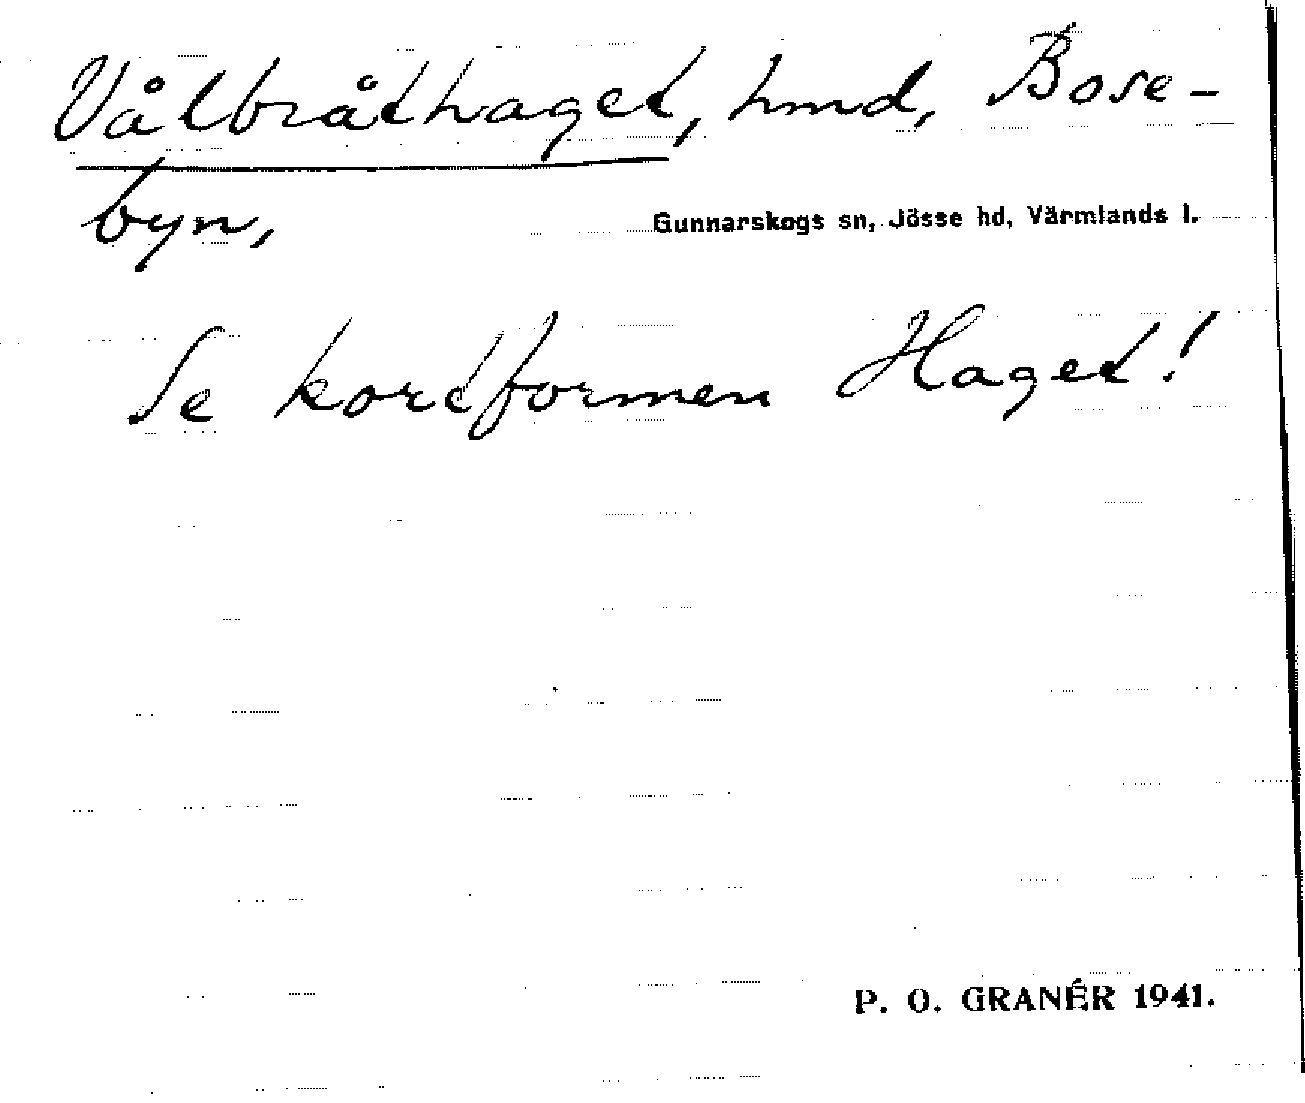 Vålbråthaget, hmd, Bose-
byn,
Gunnarskogs sn, Jösse hd, Värmlands l.
Se kortformen Haget!
P. O. GRANÉR 1941.